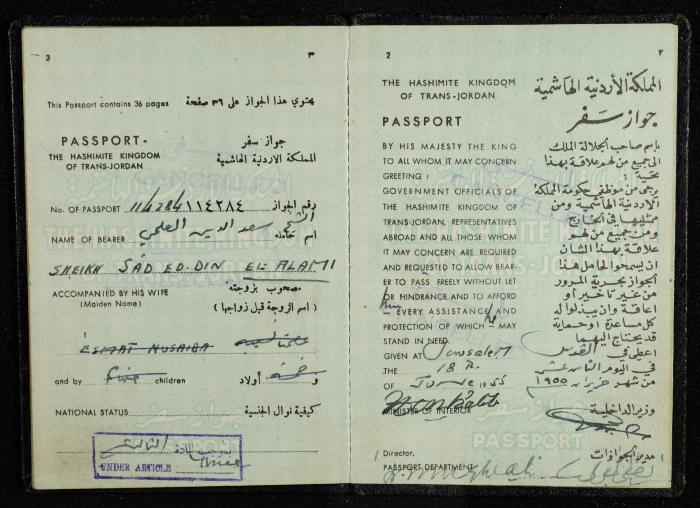 3
٣
This Passport contains 36 pages
يحتوي هذا الجواز على ٣٦ صفحة
PASSPORT-
THE HASHIMITE KINGDOM
OF TRANS-JORDAN
جواز سفر
المملكة الاردنية الهاشمية
No. OF PASSPORT 114284 ١١٤٢٨٤ رقم الجواز
NAME OF BEARER الشيخ سعد الدين العلمي اسم حامله
SHEIKH SAD ED. DIN EL-ALAMI
ACCOMPANIED BY HIS WIFE
(Maiden Name)
مصحوب بزوجته
(اسم الزوجة قبل زواجها)
ESMAT NUSAIBA
and by five children و خمسة أولاد
NATIONAL STATUS كيفية نوال الجنسية
بموجب المادة الثالثة
UNDER ARTICLE three
2
٢
THE HASHIMITE KINGDOM
OF TRANS-JORDAN
PASSPORT
BY HIS MAJESTY THE KING
TO ALL WHOM IT MAY CONCERN
GREETING :
GOVERNMENT OFFICIALS OF
THE HASHIMITE KINGDOM OF
TRANS-JORDAN, REPRESENTATIVES
ABROAD AND ALL THOSE WHOM
IT MAY CONCERN ARE REQUIRED
AND REQUESTED TO ALLOW BEAR-
ER TO PASS FREELY WITHOUT LET
OR HINDRANCE AND TO AFFORD
him EVERY ASSISTANCE AND
PROTECTION OF WHICH he MAY
STAND IN NEED.
GIVEN AT Jerusalem
THE 18th
OF June 1955
MINISTER OF INTERIOR
Director,
PASSPORT DEPARTMENT
المملكة الأردنية الهاشمية
جواز سفر
باسم صاحب الجلالة الملك
الى جميع من لهم علاقة بهذا
تحية :
يرجى من موظفي حكومة المملكة
الاردنية الهاشمية ومن
ممثليها في الخارج
ومن جميع من لهم
علاقة بهذا الشأن
ان يسمحوا لحامل هذا
الجواز بحرية المرور
من غير تأخير أو
اعاقة وان يبذلوا له
كل مساعدة أو حماية
قد يحتاج اليهما
اعطي في القدس
في اليوم الثامن عشر
من شهر حزيران ١٩٥٥
وزير الداخلية
مدير الجوازات